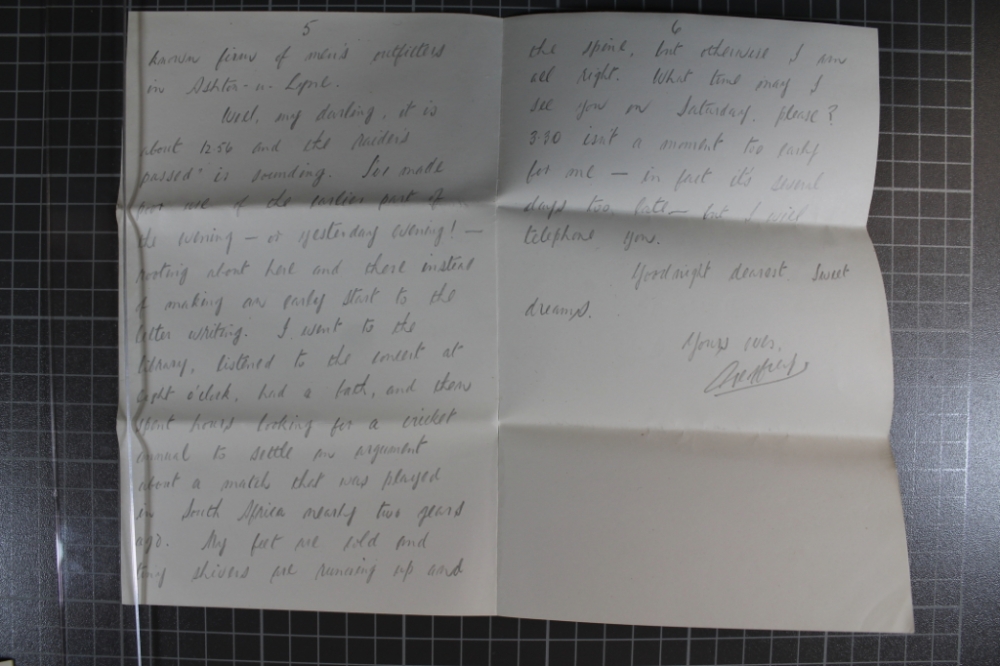 5
known firm of men's outfitters
in Ashton-u-Lyne.
Well, my darling, it is
about 12.56 and the 'raiders
passed' is sounding. I've made
poor use of the earlier part of
the evening — or yesterday evening! —
rooting about here and there instead
of making an early start to the
letter writing. I went to the
library, listened to the concert at
eight o'clock, had a bath, and then
spent hours looking for a cricket
annual to settle an argument
about a match that was played
in South Africa nearly two years
ago. My feet are cold and
tiny shivers are running up and
6
the spine, but otherwise I am
all right. What time may I
see you on Saturday, please?
3.30 isn't a moment too early
for me — in fact it's several
days too late — but I will
telephone you.
Goodnight dearest. Sweet
dreams.
Yours ever,